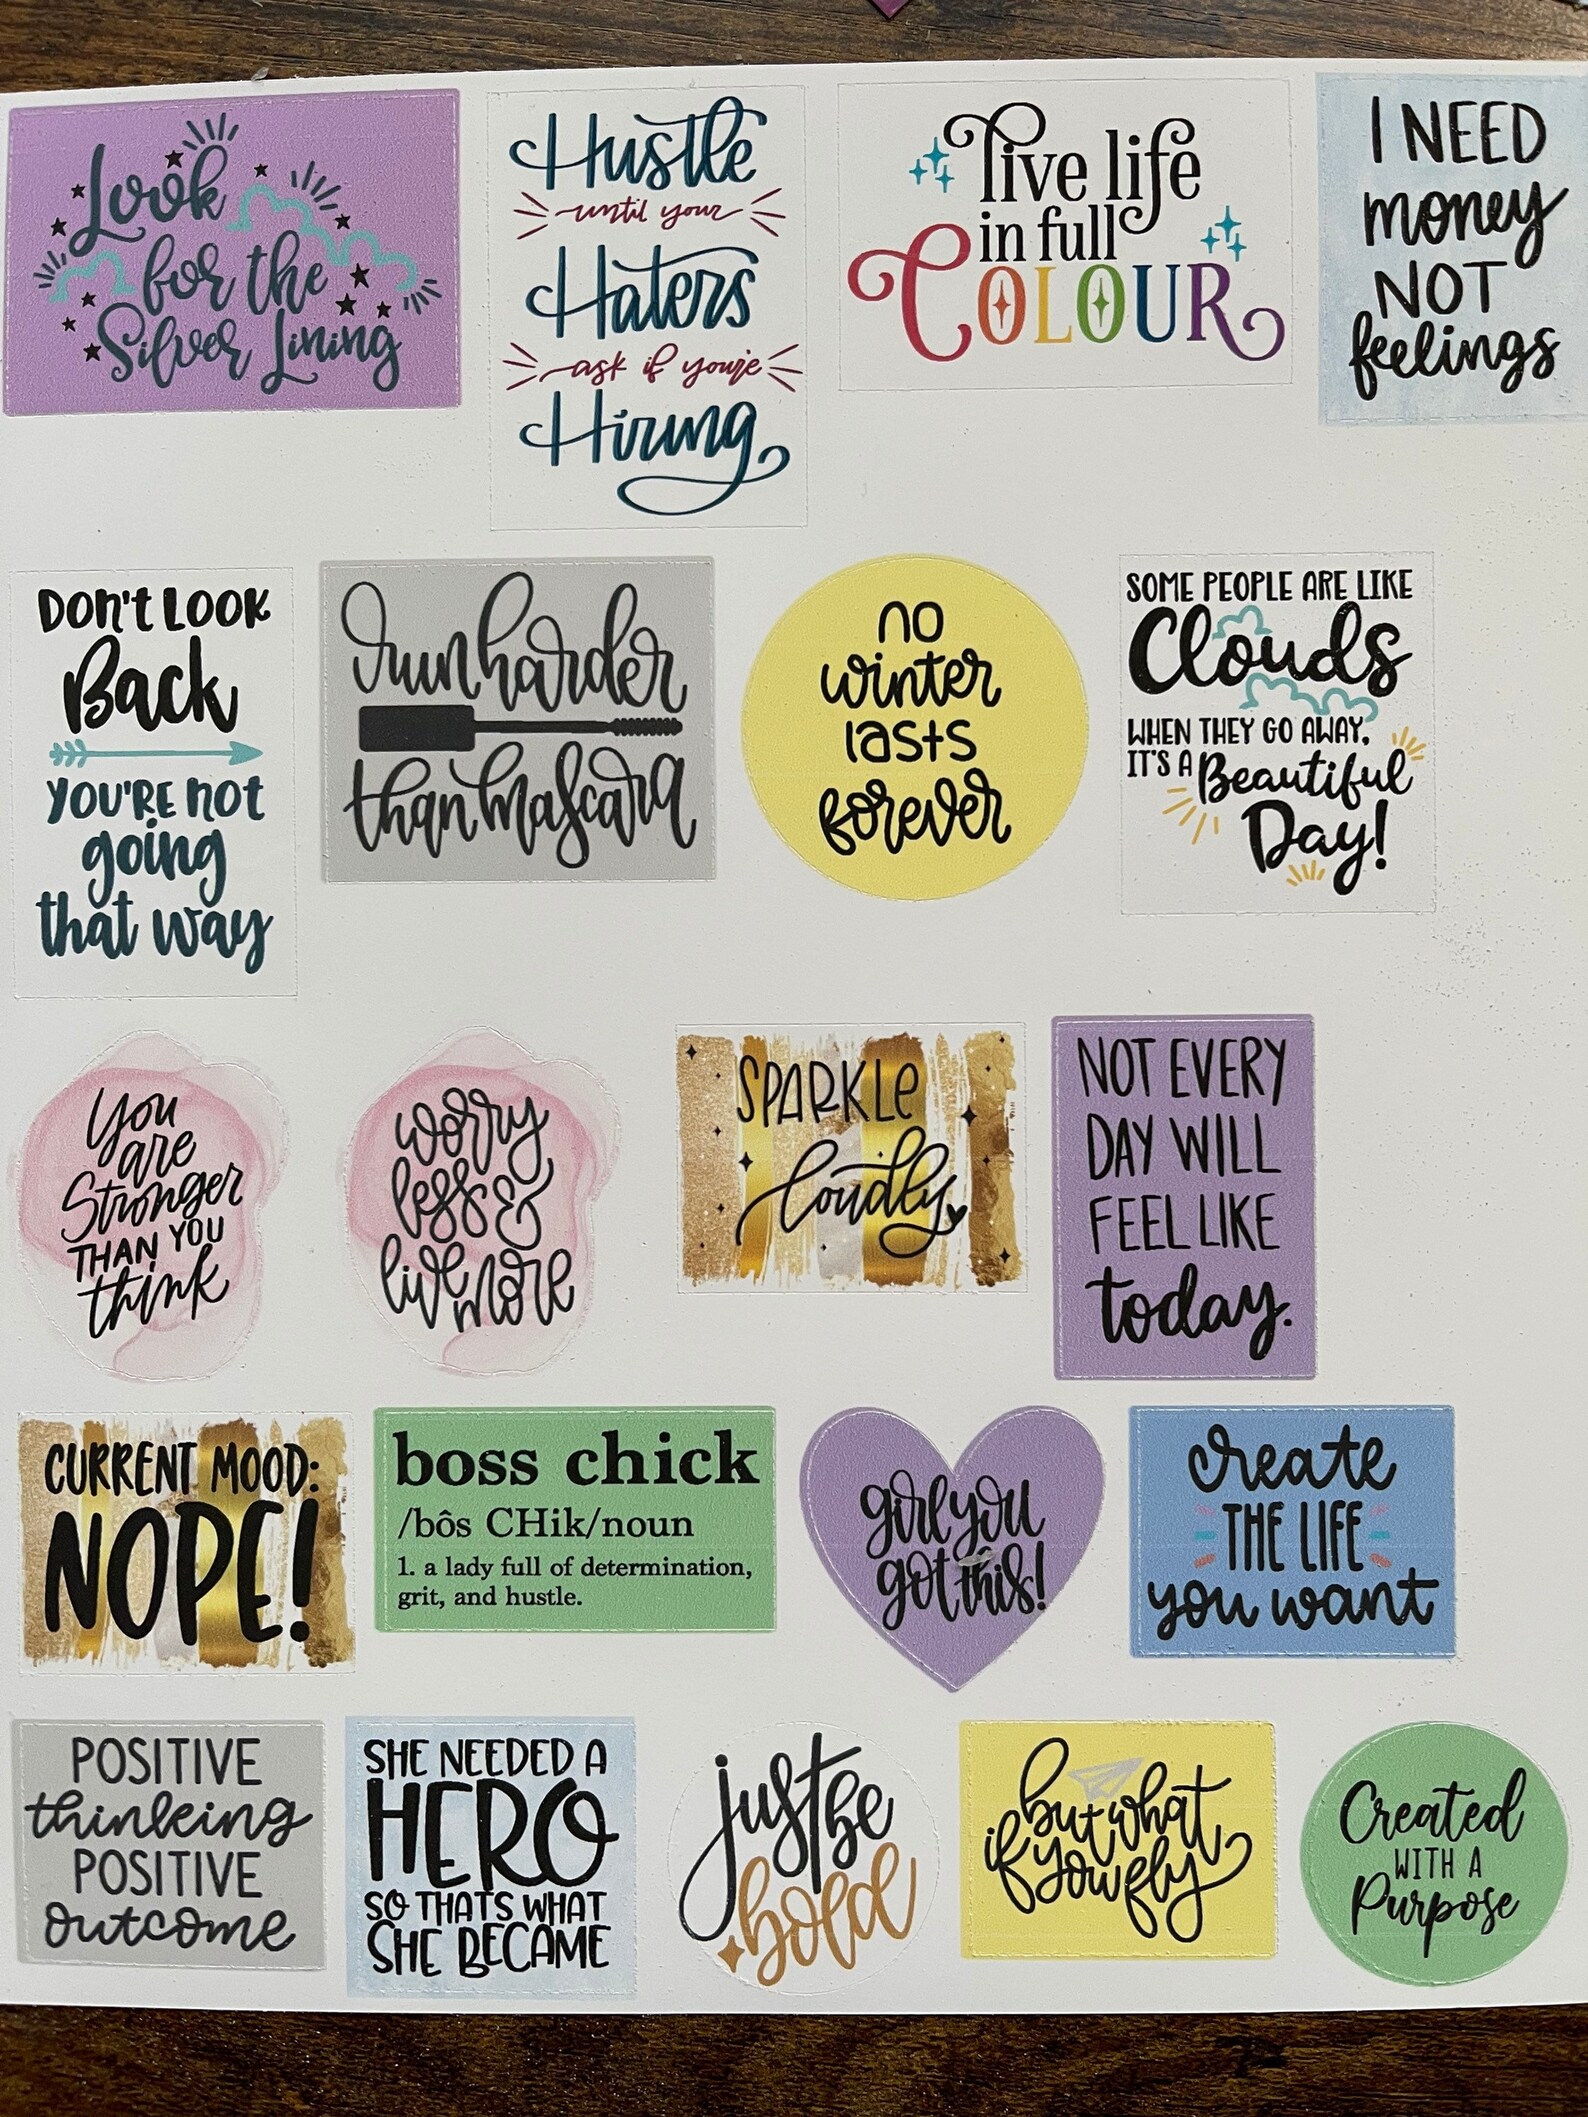 Look
for the
Silver Lining
Hustle
until your
Haters
ask if you're
Hiring
live life
in full
COLOUR
I NEED
money
NOT
feelings
DON'T LOOK
Back
YOU'RE not
going
that way
run harder
than mascara
no
winter
lasts
forever
SOME PEOPLE ARE LIKE
Clouds
WHEN THEY GO AWAY,
IT'S A Beautiful
Day!
You
are
Stronger
THAN YOU
think
worry
less &
live more
SPARKLE
loudly
NOT EVERY
DAY WILL
FEEL LIKE
today.
CURRENT MOOD:
NOPE!
boss chick
/bôs CHik/noun
1. a lady full of determination,
grit, and hustle.
girl you
got this!
Create
THE LIFE
you want
POSITIVE
thinking
POSITIVE
outcome
SHE NEEDED A
HERO
SO THATS WHAT
SHE BECAME
just be
bold
but what
if you fly
Created
WITH A
Purpose